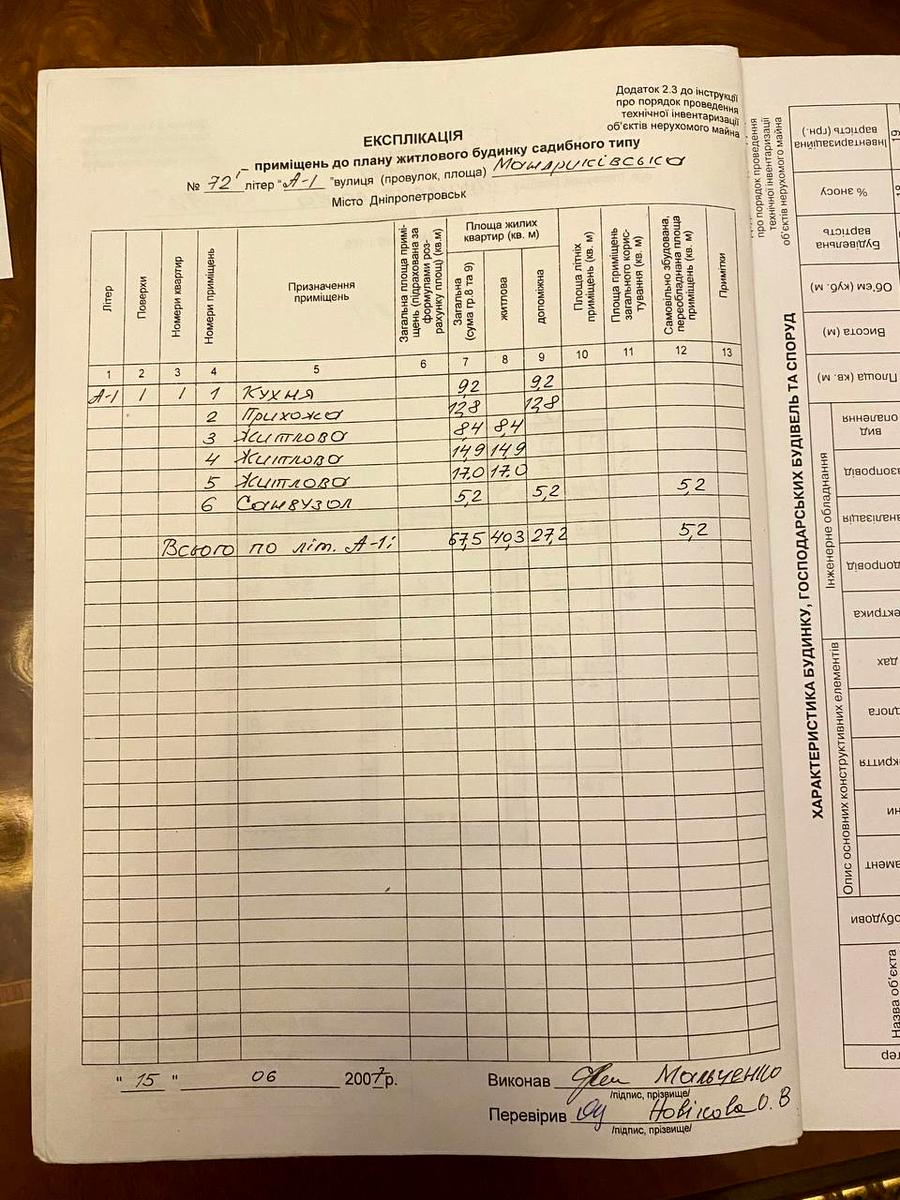 Додаток 2.3 до інструкції
про порядок проведення
технічної інвентаризації
об'єктів нерухомого майна
ЕКСПЛІКАЦІЯ
приміщень до плану житлового будинку садибного типу
№ 72 літер "А-1 "вулиця (провулок, площа) Мандриківська
Місто Дніпропетровськ
Літер
Поверхи
Номери квартир
Номери приміщень
Призначення приміщень
Загальна площа приміщень (підрахована за формулами розрахунку площ) (кв.м)
Площа жилих квартир (кв. м)
Загальна (сума гр.8 та 9)
житлова
допоміжна
Площа літніх приміщень (кв. м)
Площа приміщень загального користування (кв. м)
Самовільно збудована, переобладнана площа приміщень (кв. м)
Примітки
1 2 3 4 5 6 7 8 9 10 11 12 13
А-1 1 1 1 Кухня 9,2 9,2
2 Прихожа 12,8 12,8
3 Житлова 8,4 8,4
4 Житлова 14,9 14,9
5 Житлова 17,0 17,0
6 Санвузол 5,2 5,2 5,2
Всього по літ. А-1: 67,5 40,3 27,2 5,2
" 15 " 06 2007р.
Виконав Мальченко
/підпис, прізвище/
Перевірив Новікова О.В
/підпис, прізвище/
про порядок проведення
технічної інвентаризації
об'єктів нерухомого майна
ХАРАКТЕРИСТИКА БУДИНКУ, ГОСПОДАРСЬКИХ БУДІВЕЛЬ ТА СПОРУД
Інвентаризаційна вартість (грн.)
% зносу
Будівельна вартість
Об'єм (куб. м)
Висота (м)
Площа (кв. м)
Інженерне обладнання
вид опалення
Опис основних конструктивних елементів
дах
Назва об'єкта